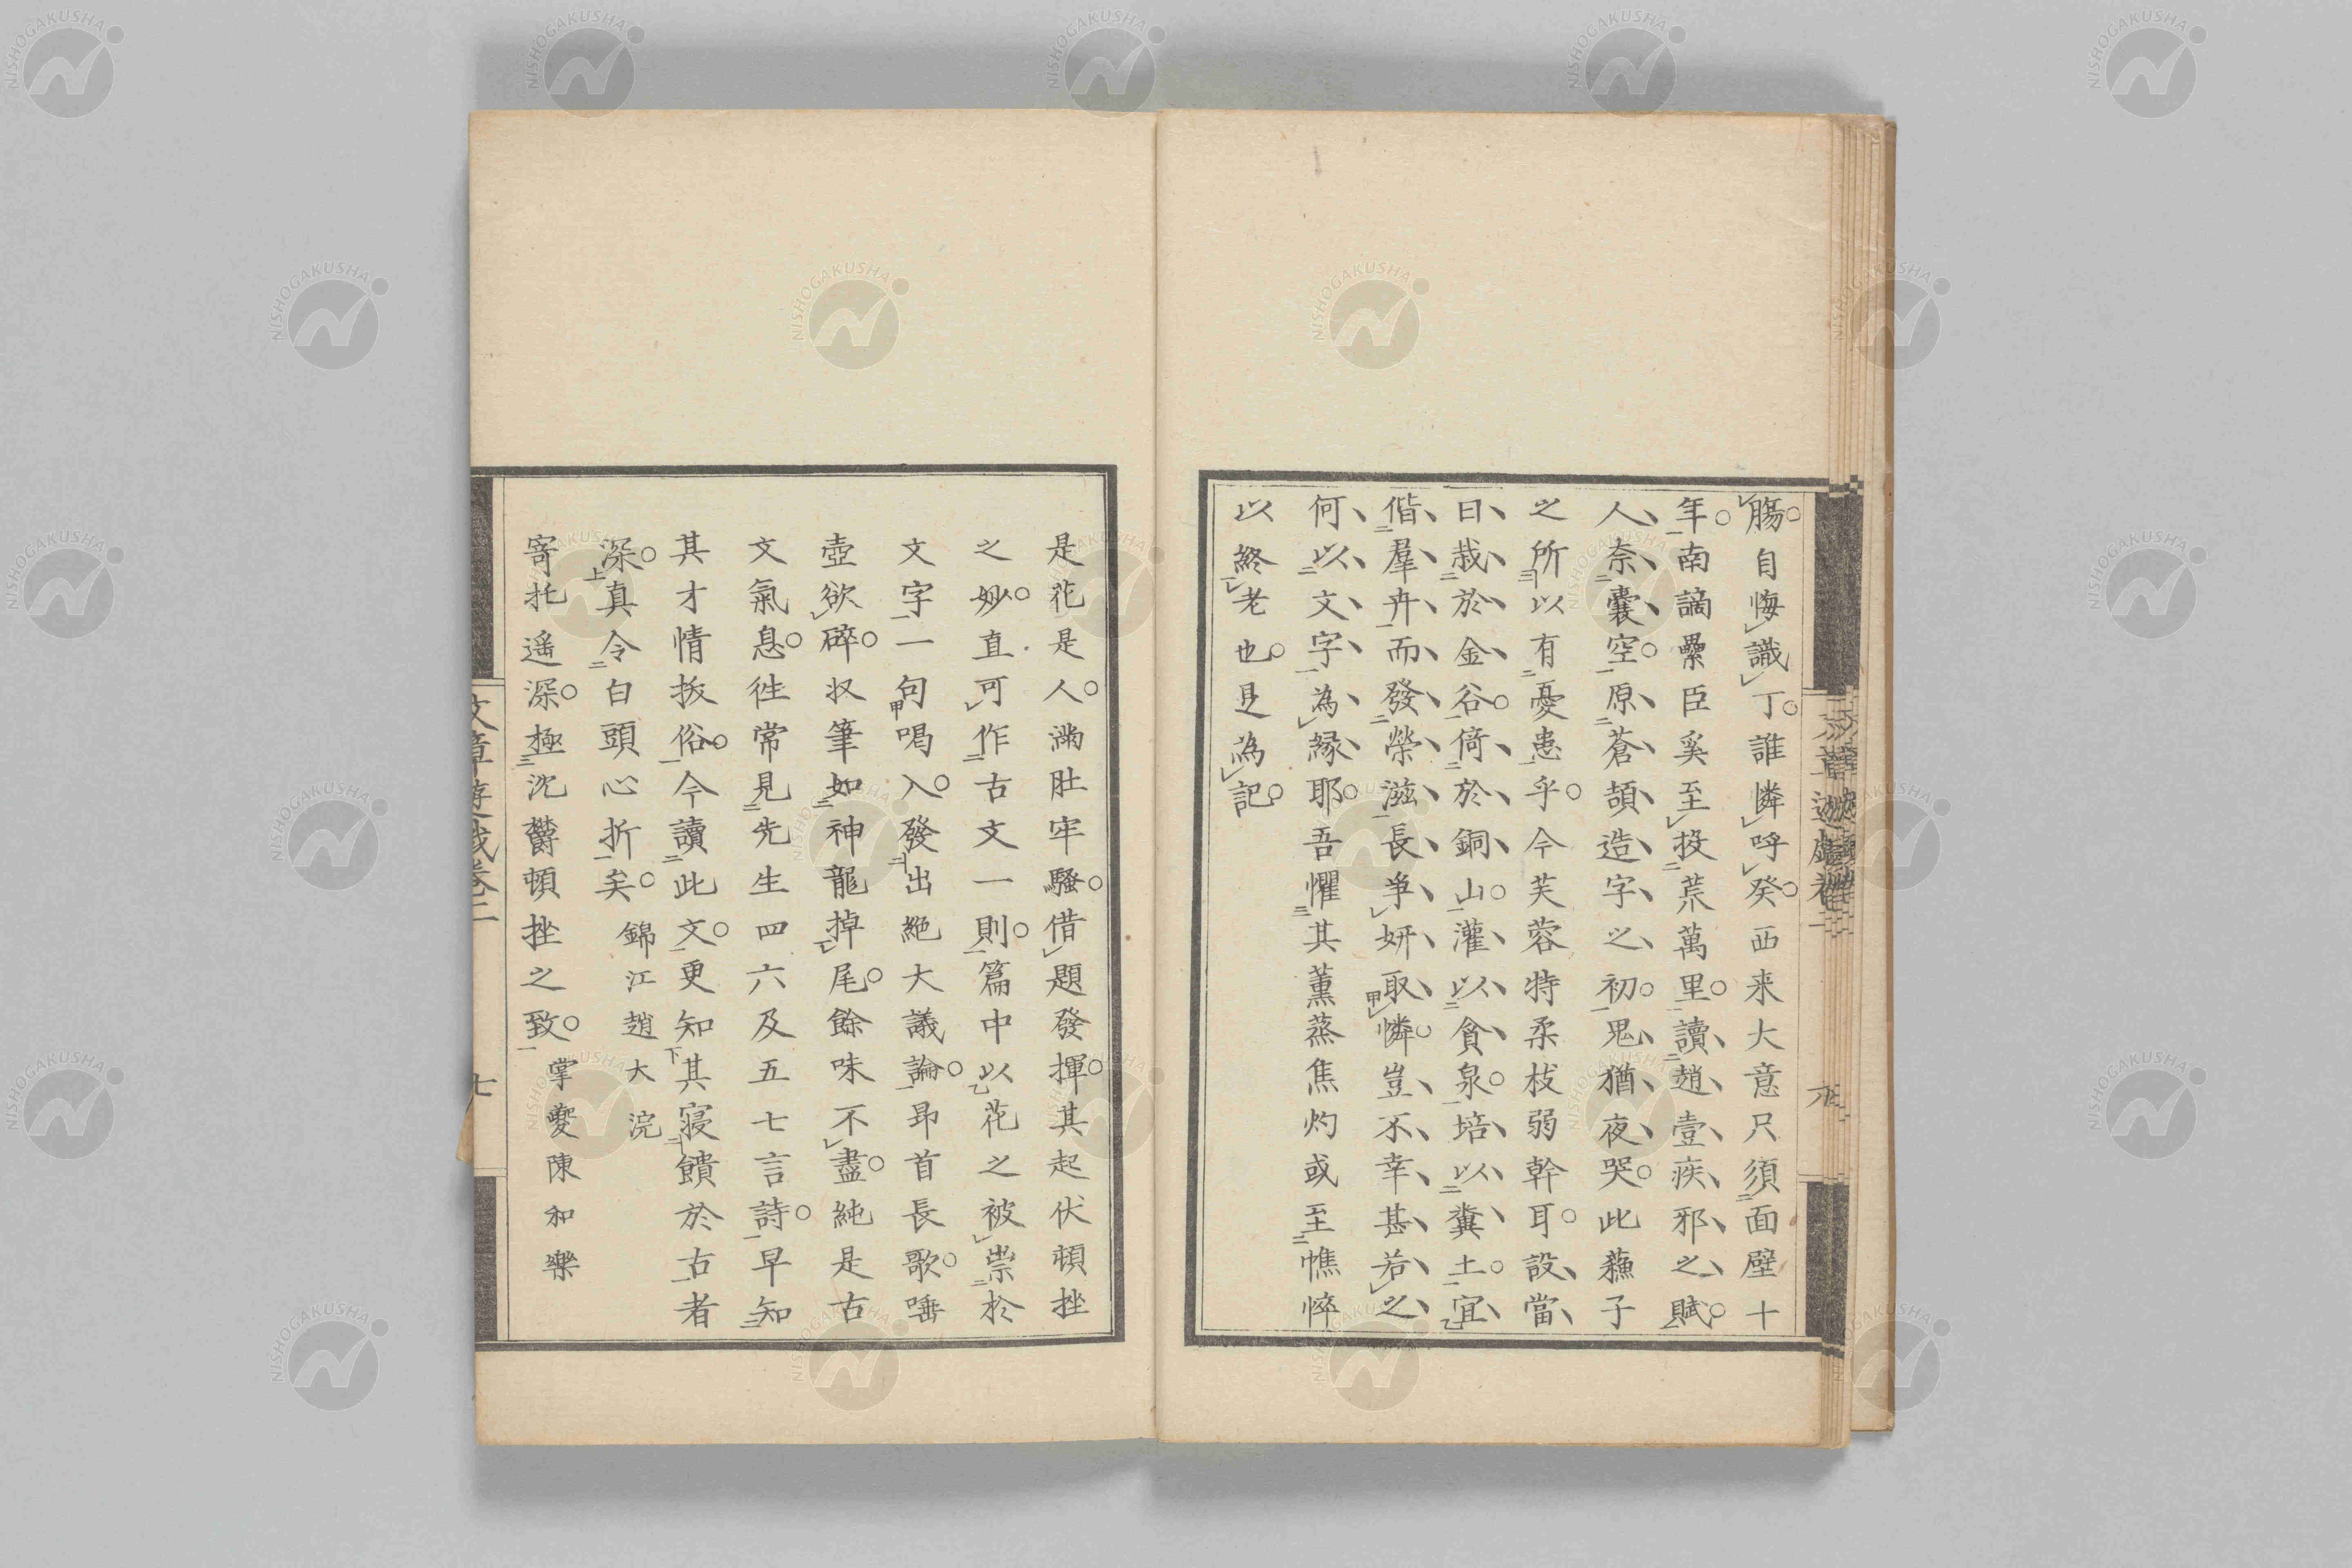 腸自悔識丁誰憐呼癸西来大意只須面壁十
年南謫纍臣奚至投荒萬里讀趙壹疾邪之賦
人奈囊空原蒼頡造字之初鬼猶夜哭此蘓子
之所以有憂患乎今芙蓉特柔枝弱幹耳設當
日栽於金谷倚於銅山灌以貪泉培以糞土宜
偕羣卉而發榮滋長爭妍取憐豈不幸甚若之
何以文字為縁耶吾懼其薫蒸焦灼或至憔悴
以終老也是為記
是花是人滿肚牢騷借題發揮其起伏頓挫
之妙直可作古文一則篇中以花之被祟於
文字一句喝入發出絶大議論昂首長歌唾
壺欲碎収筆如神龍掉尾餘味不盡純是古
文氣息徃常見先生四六及五七言詩早知
其才情拔俗今讀此文更知其寝饋於古者
深真令白頭心折矣 錦江趙大浣
寄托遥深極沈欝頓挫之致 掌夔陳和樂
文章游戯卷二
七
NISHOGAKUSHA